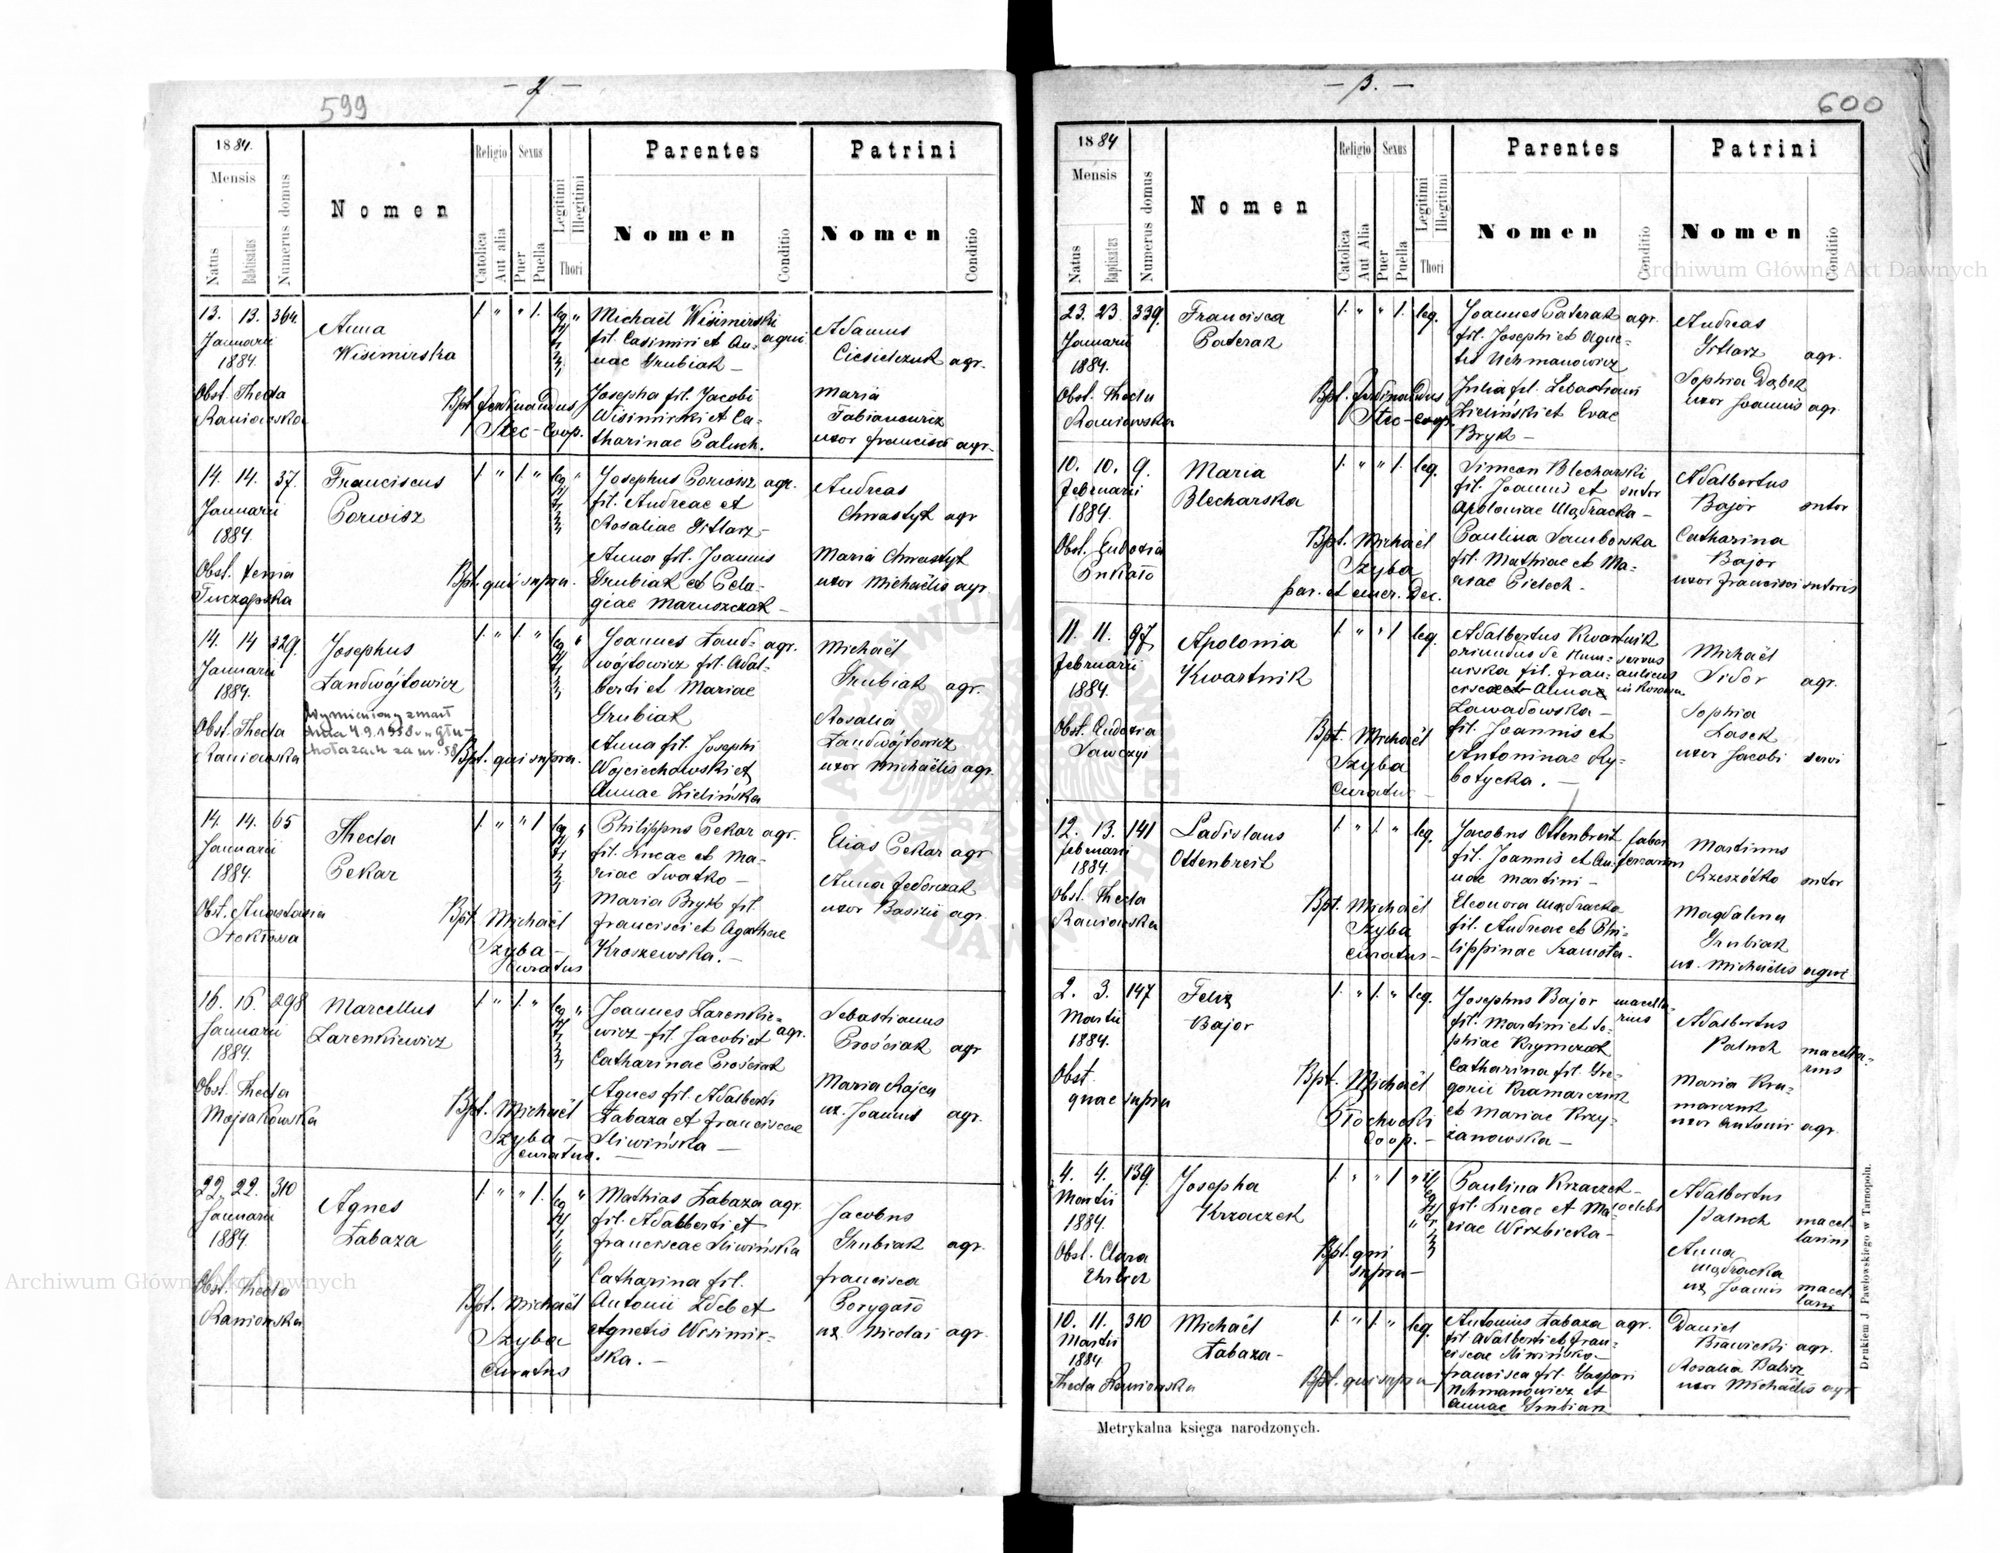 599
- 2 -
1884.
Mensis
Natus
Babtisatus
Numerus domus
Nomen
Religio
Catolica
Aut alia
Sexus
Puer
Puella
Legitimi
Illegitimi
Thori
Parentes
Nomen
Conditio
Patrini
Nomen
Conditio
13. 13. 364.
Januarii
1884.
Obst. Thecla
Raniowska
Anna
Wisimirska
Bpt. Ferdinandus
Stec - Coop.
1. " " 1. leg. "
Michaël Wisimirski
fil. Casimiri et An- agri
nae Grubiak -
Josepha fil. Jacobi
Wisimirski et Ca-
tharinae Paluch.
Adamus
Ciesielczuk agr.
Maria
Fabiancwicz
uxor Francisci agr.
14. 14. 37.
Januarii
1884.
Obst. Xenia
Turczapska
Franciscus
Porwisz
Bpt. qui supra.
1. " 1. " leg. "
Josephus Porwisz agr.
fil. Andreae et
Rosaliae Gitlarz -
Anna fil. Joannis
Grubiak et Pela-
giae Maruszczak -
Andreas
Chwastyk agr
Maria Chwastyk
uxor Michaëlis agr.
14. 14 329.
Januarii
1884.
Obst. Thecla
Raniowska
Josephus
Landwójtowicz
Wymieniony zmarł
dnia 4.9.1958 w Głu-
chołazach za nr. 58
Bpt. qui supra.
1. " 1. " leg. "
Joannes Land- agr.
wójtowicz fil. Adal-
berti et Mariae
Grubiak
Anna fil. Josephi
Wojciechowski et
Annae Zielińska
Michaël
Grubiak agr.
Rosalia
Landwójtowicz
uxor Michaëlis agr.
14. 14. 65
Januarii
1884.
Obst. Anastasia
Stokłosa
Thecla
Pekar
Bpt. Michaël
Szyba -
curatus
1. " " 1 leg. "
Philippus Pekar agr.
fil. Lucae et Ma-
riae Swatko -
Maria Bryk fil.
Francisci et Agathae
Kroszewska. -
Elias Pekar agr
Anna Fedorczak
uxor Basilii agr.
16. 16. 298
Januarii
1884.
Obst. Thecla
Mojsakowska
Marcellus
Larenkiewicz
Bpt. Michaël
Szyba -
curatus.
1. " 1. " leg. "
Joannes Larenkie-
wicz - fil. Jacobi et agr.
Catharinae Prościak
Agnes fil. Adalberti
Łabaza et Franciscae
Sliwińska -
Sebastianus
Prościak agr
Maria Rajca
ux. Joannis agr.
22. 22. 310
Januarii
1884.
Obst. Thecla
Raniowska
Agnes
Łabaza
Bpt. Michaël
Szyba
curatus
1. " " 1. leg. "
Mathias Łabaza agr.
fil. Adalberti et
Franciscae Sliwińska
Catharina fil.
Antonii Zdeb et
Agnetis Wisimir-
ska. -
Jacobus
Grubiak agr.
Francisca
Porygało
ux. Nicolai agr.
- 3. -
600
1884
Mensis
Natus
Baptisatus
Numerus domus
Nomen
Religio
Catolica
Aut Alia
Sexus
Puer
Puella
Legitimi
Illegitimi
Thori
Parentes
Nomen
Conditio
Patrini
Nomen
Conditio
23. 23. 339.
Januarii
1884.
Obst. Thecla
Raniowska
Francisca
Paterak
Bpt. Ferdinandus
Stec - coop.
1. " " 1. leg.
Joannes Paterak agr.
fil. Josephi et Agne-
tis Uchmanowicz
Julia fil. Sebastiani
Zieliński et Evae
Bryk -
Andreas
Gitlarz agr.
Sophia Dąbek
uxor Joannis agr.
10. 10. 9.
Februarii
1884.
Obst. Eudoxia
Maria
Blecharska
Bpt. Michaël
Szyba
par. et emer. Dec.
1. " " 1. leg.
Simeon Blecharski
fil. Joannis et sutor
Apoloniae Mądracka -
Paulina Samborska
fil. Mathiae et Ma-
riae Pielech -
Adalbertus
Bajor sutor
Catharina
Bajor
uxor Francisci sutoris
11. 11. 97.
Februarii
1884.
Obst. Eudoxia
Sawczyj
Apolonia
Kwartnik
Bpt. Michaël
Szyba
curatus -
1. " " 1 leg.
Adalbertus Kwartnik
oriundus de Hum- servus
niska fil. Fran- aulicus
cisca et Annae
Zawadowska -
fil. Joannis et
Antoninae Ry-
botycka. -
Michaël
Sidor agr.
Sophia
Lasek
uxor Jacobi servi
12. 13. 141
Februarii
1884.
Obst. Thecla
Raniowska
Ladislaus
Ottenbreit
Bpt. Michaël
Szyba
curatus -
1. " 1. " leg.
Jacobus Ottenbreit faber
fil. Joannis et An- ferrarius
nae Martini -
Eleonora Mądracka
fil. Andreae et Phi-
lippinae Szamota -
Martinus
Rzeszótko sutor
Magdalena
Grubiak
ux. Michaëlis agri
2. 3. 147
Martii
1884.
Obst.
quae supra
Felix
Bajor
Bpt. Michaël
Płochocki
Coop. -
1. " 1. " leg.
Josephus Bajor macella-
rius
fil. Martini et So-
phiae Krymczak
Catharina fil. Gre-
gorii Kramarczuk
et Mariae Krzy-
żanowska -
Adalbertus
Paluch macella-
rius
Maria Kra-
marczuk
uxor Antonii agr.
4. 4. 139.
Martii
1884.
Obst. Clara
Ehrlich
Josepha
Krzaczek
Bpt. qui
supra -
1. " " 1 "
Paulina Krzaczek -
fil. Lucae et Ma- coelebs
riae Wirzbicka -
Adalbertus
Paluch macel-
larius
Anna
Mądracka
ux. Joannis macel-
larii
10. 11. 310
Martii
1884
Thecla Raniowska
Michaël
Łabaza -
Bpt. qui supra
1. " 1. " leg.
Antonius Łabaza agr.
fil. Adalberti et Fran-
ciscae Sliwińska -
Francisca fil. Gaspari
Uchmanowicz et
Annae Grubiak
Daniel
Brawicki agr.
Rosalia Balisz
uxor Michaëlis agr.
Metrykalna księga narodzonych.
Drukiem J. Pawłowskiego w Tarnopolu.
Archiwum Główne Akt Dawnych
Archiwum Główne Akt Dawnych